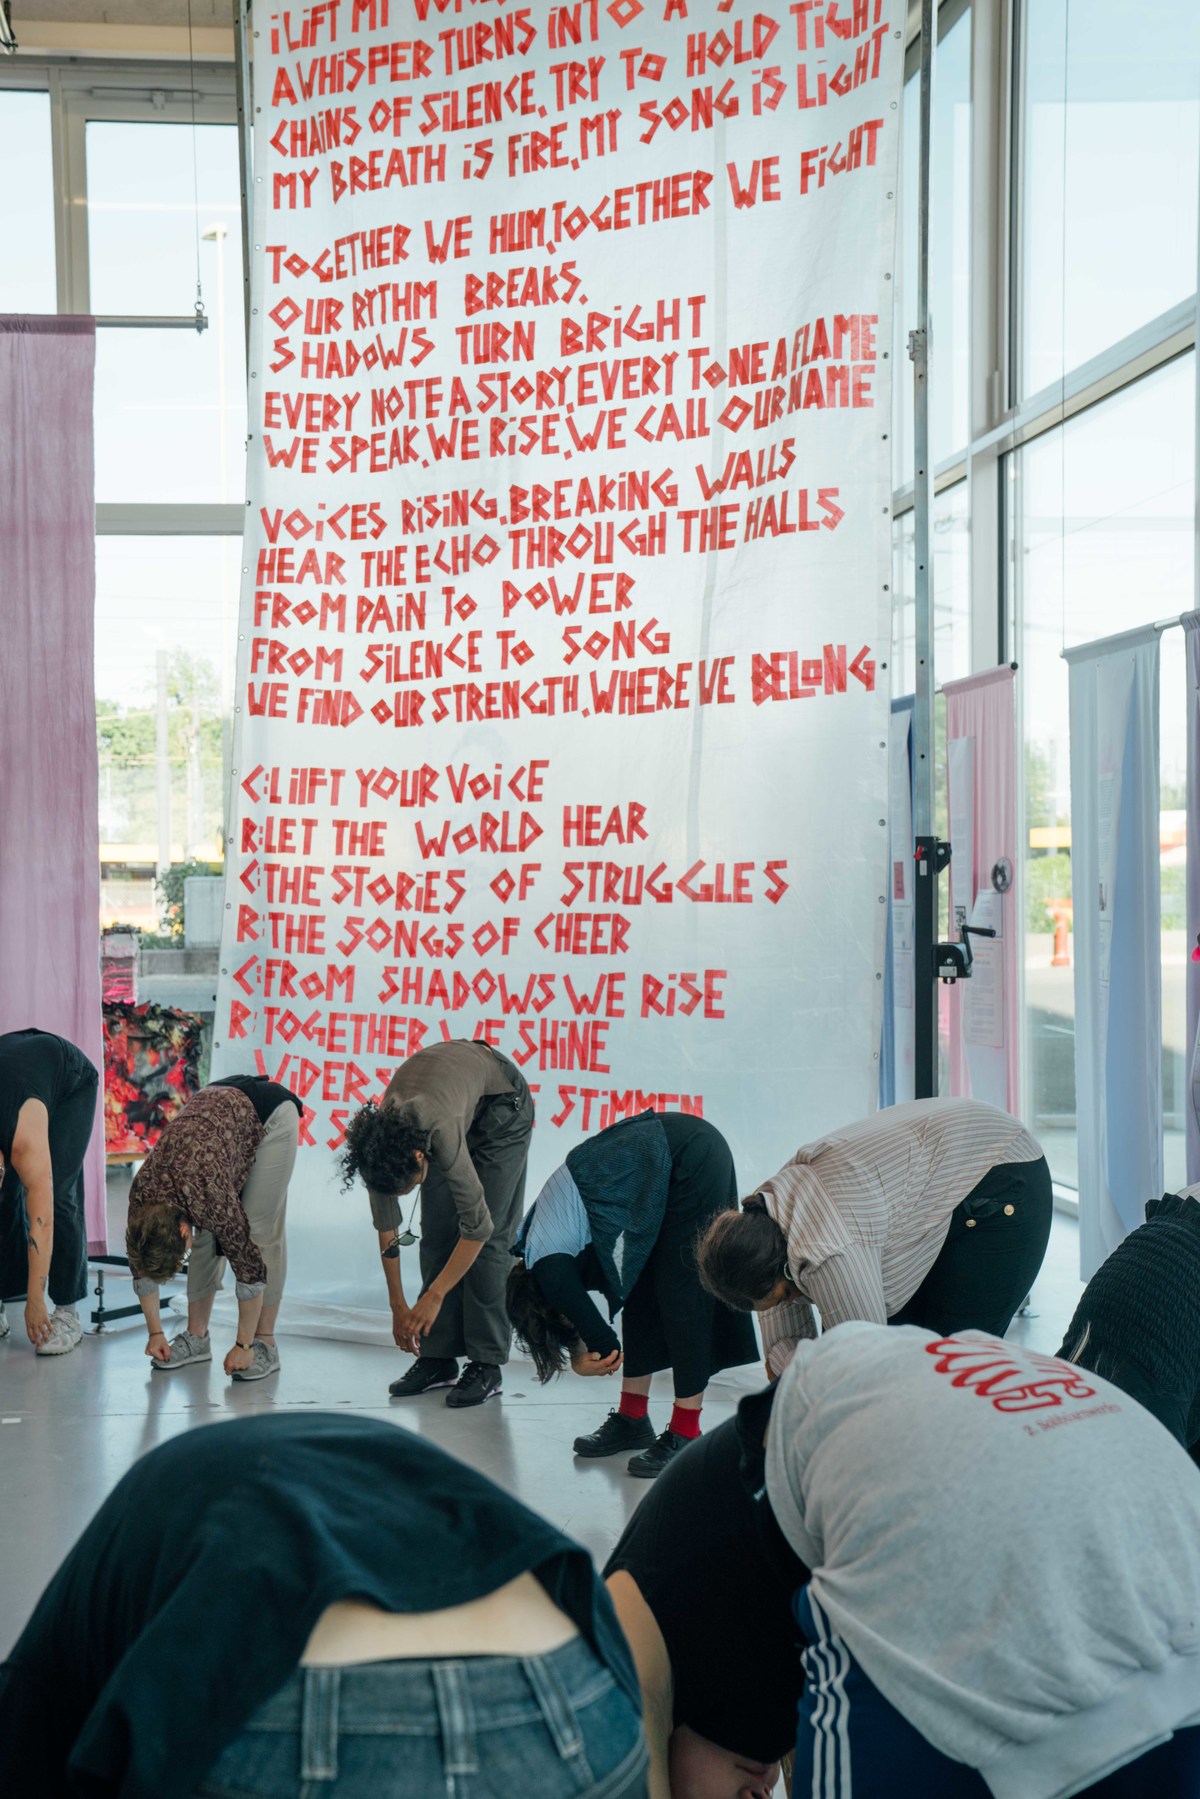 i LiFT MY
A WHiSPER TURNS iNTO A
CHAiNS OF SiLENCE, TRY TO HOLD TiGHT
MY BREATH iS FiRE, MY SONG iS LiGHT
TOGETHER WE HUM, TOGETHER WE FiGHT
OUR RYTHM BREAKS.
SHADOWS TURN BRiGHT
EVERY NOTE A STORY, EVERY TONE A FLAME
WE SPEAK, WE RiSE, WE CALL OUR NAME
VOiCES RiSiNG, BREAKiNG WALLS
HEAR THE ECHO THROUGH THE HALLS
FROM PAiN TO POWER
FROM SiLENCE TO SONG
WE FiND OUR STRENGTH, WHERE WE BELONG
C: LiiFT YOUR VOiCE
R: LET THE WORLD HEAR
C: THE STORiES OF STRUGGLES
R: THE SONGS OF CHEER
C: FROM SHADOWS WE RiSE
R: TOGETHER WE SHiNE
STiMMEN